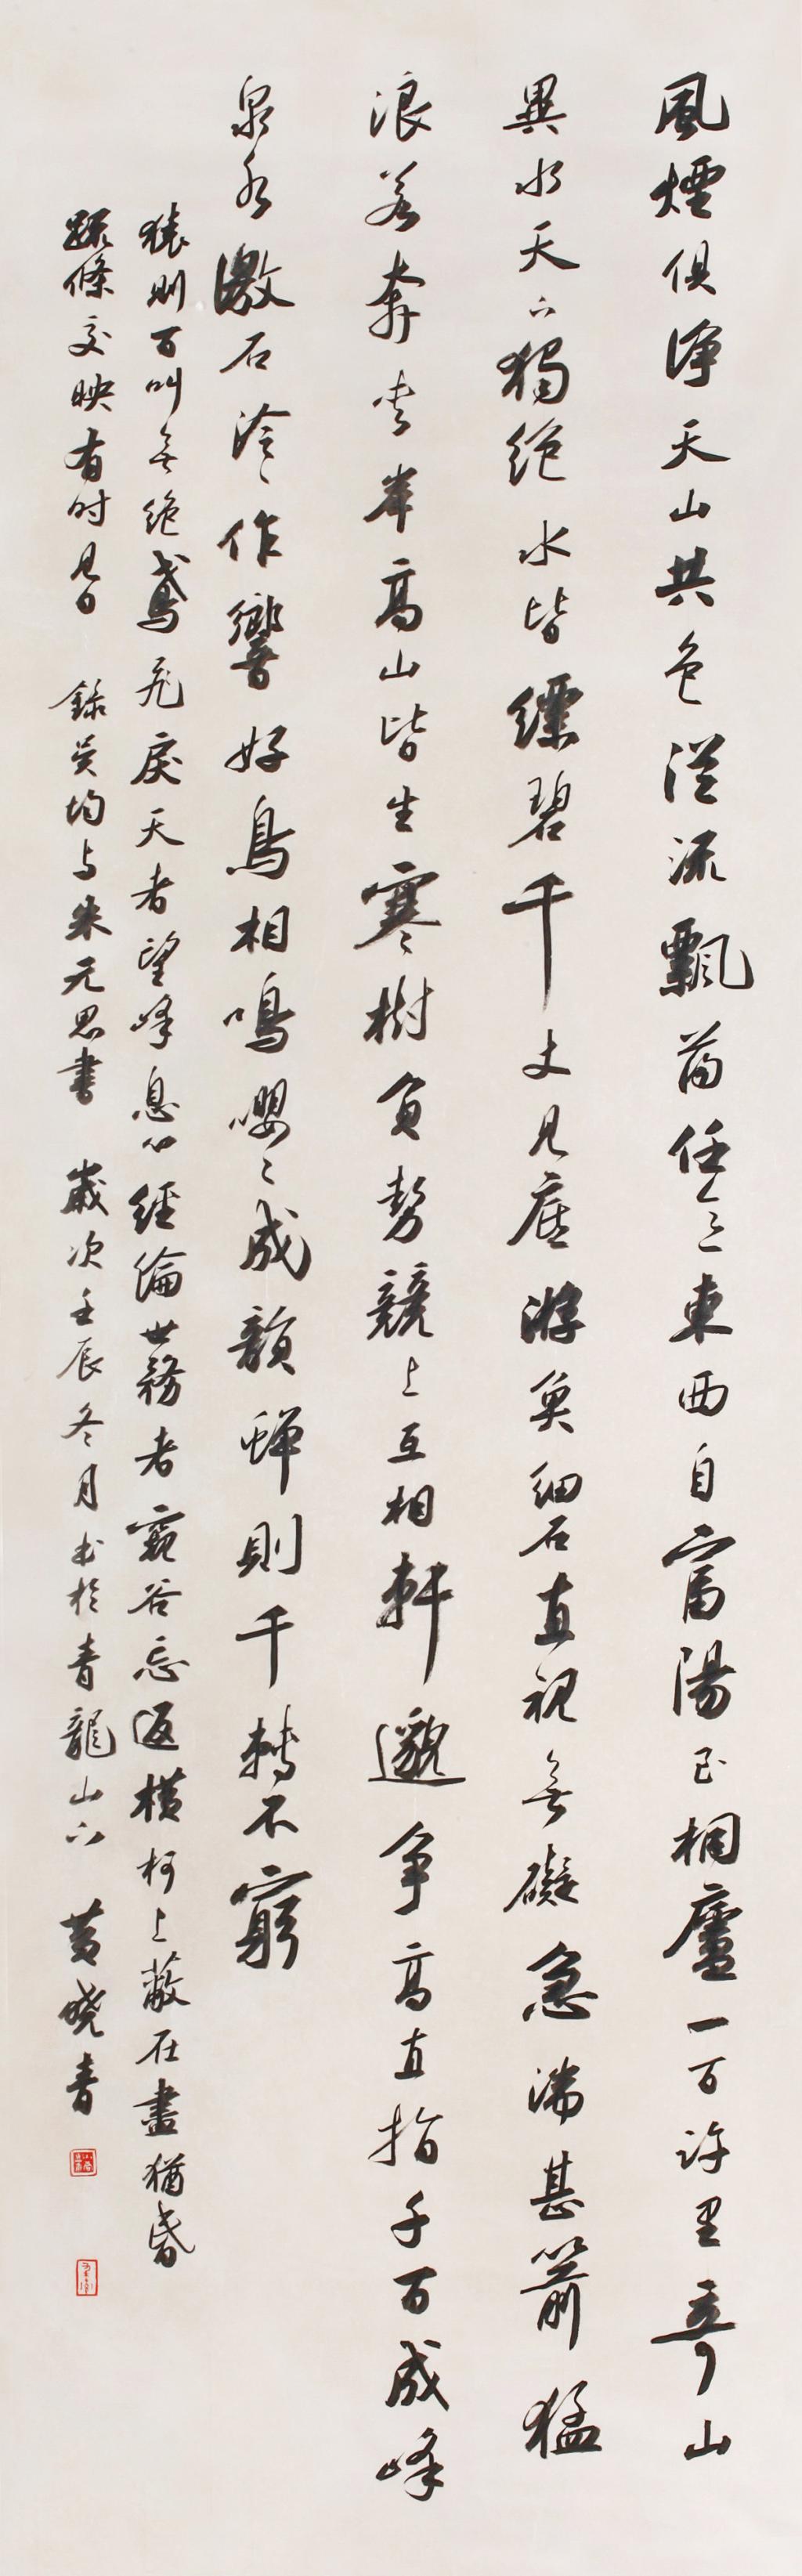 風煙俱淨天山共色從流飄蕩任意東西自富陽至桐廬一百許里奇山
異水天下獨絕水皆縹碧千丈見底游魚細石直視無礙急湍甚箭猛
浪若奔夾岸高山皆生寒樹負勢競上互相軒邈爭高直指千百成峰
泉水激石泠泠作響好鳥相鳴嚶嚶成韻蟬則千轉不窮
猿則百叫無絕鳶飛戾天者望峰息心經綸世務者窺谷忘返橫柯上蔽在晝猶昏
疏條交映有時見日 錄吳均与朱元思書 歲次壬辰冬月書於青龍山下 黃曉青